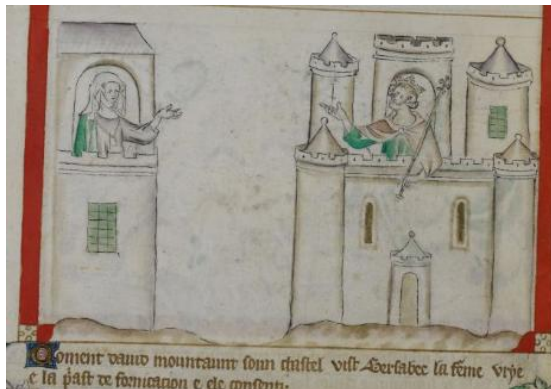 Coment dauid mountaunt soun chastel vist Bersabee la feme vrye
e la p̄ast de fornicacion e ele consenti.